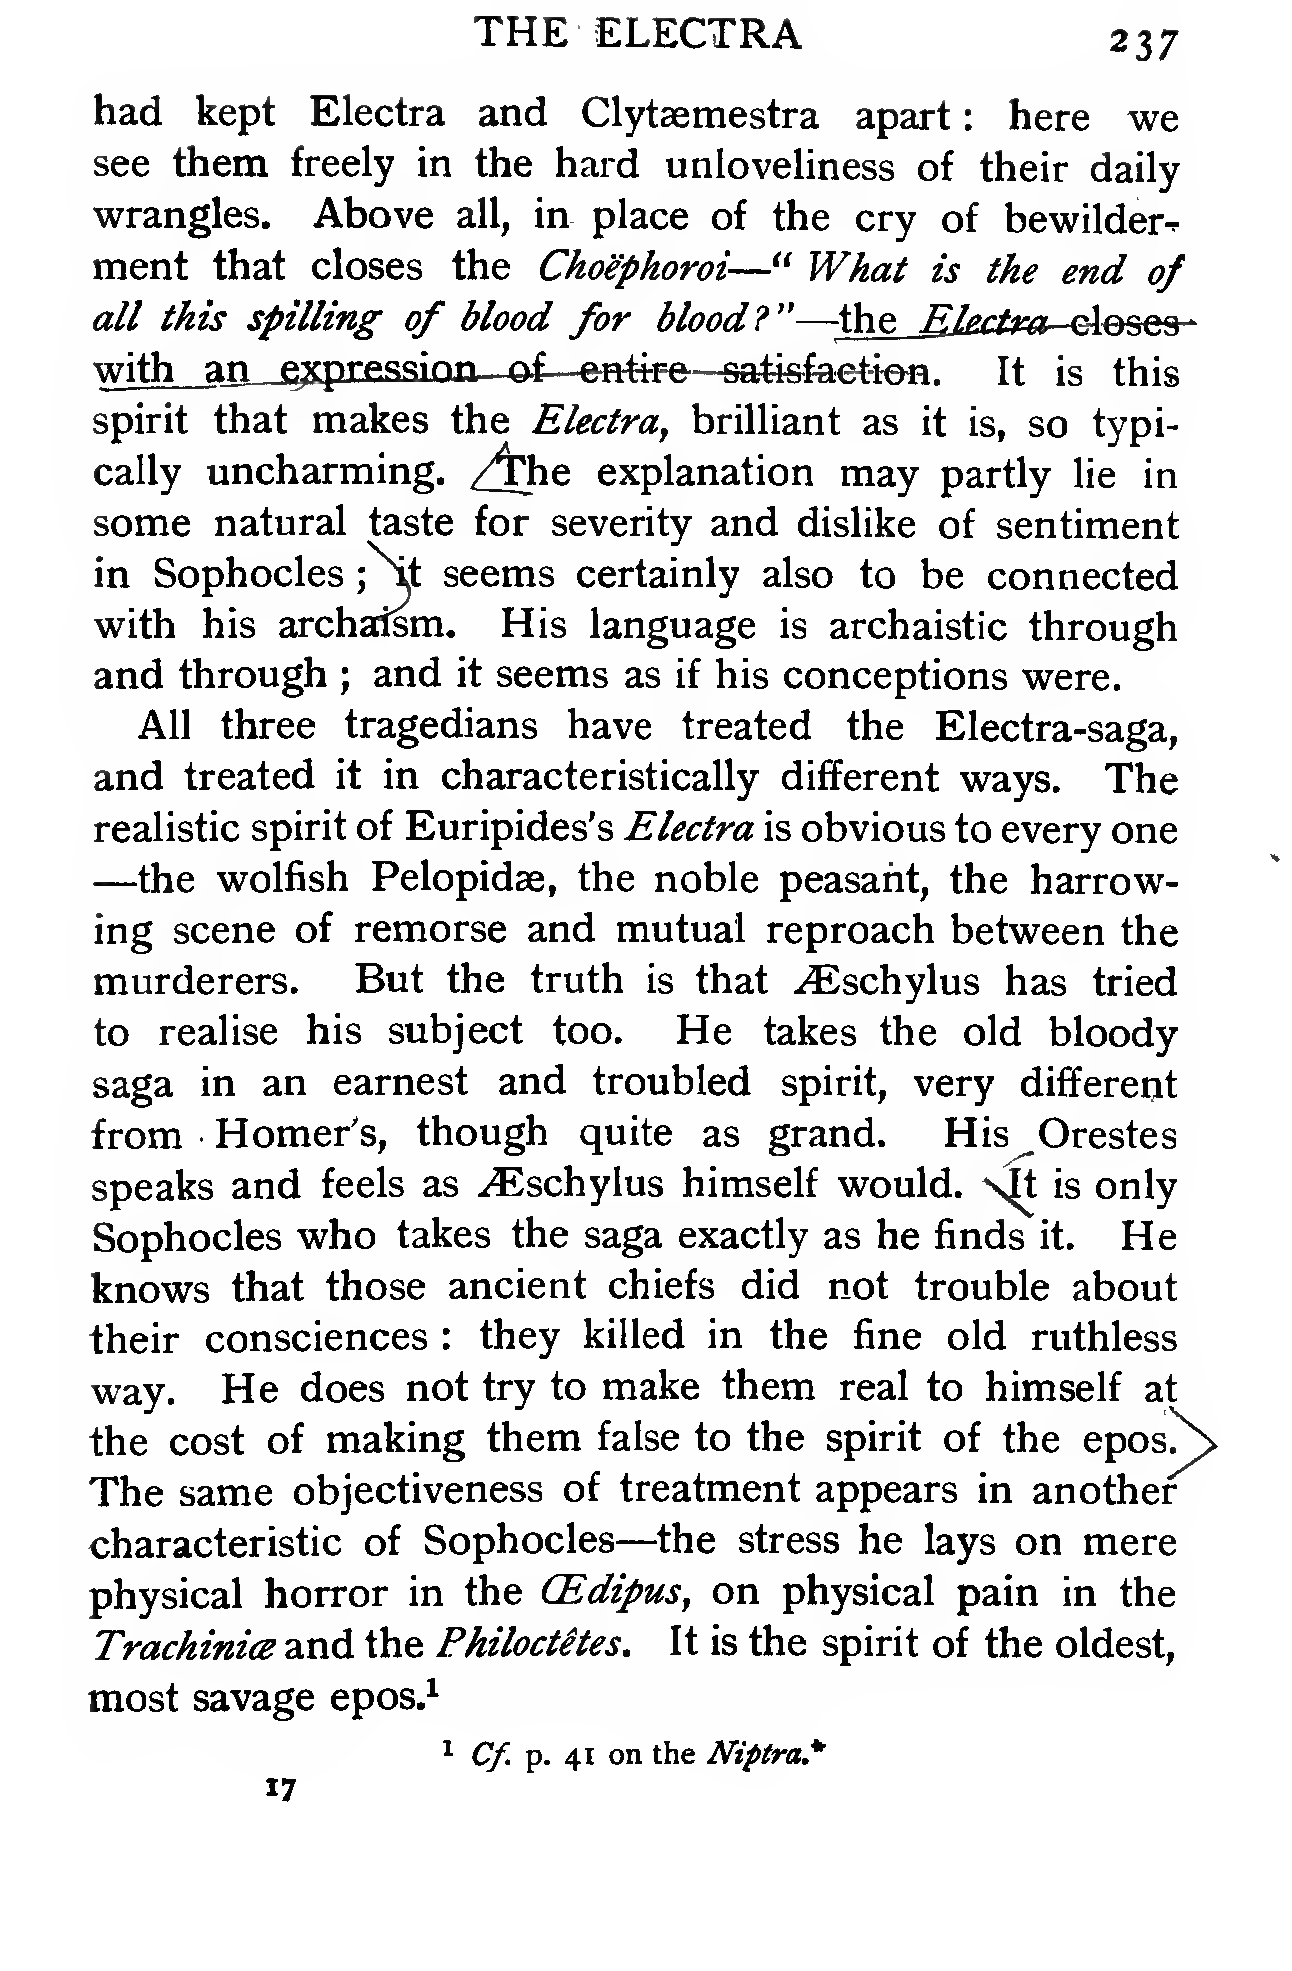 THE ELECTRA 237
had kept Electra and Clytæmestra apart : here we
see them freely in the hard unloveliness of their daily
wrangles. Above all, in place of the cry of bewilder-
ment that closes the Choëphoroi—“ What is the end of
all this spilling of blood for blood? ”—the Electra closes
with an expression of entire satisfaction. It is this
spirit that makes the Electra, brilliant as it is, so typi-
cally uncharming. The explanation may partly lie in
some natural taste for severity and dislike of sentiment
in Sophocles ; it seems certainly also to be connected
with his archaism. His language is archaistic through
and through ; and it seems as if his conceptions were.
All three tragedians have treated the Electra-saga,
and treated it in characteristically different ways. The
realistic spirit of Euripides's Electra is obvious to every one
—the wolfish Pelopidæ, the noble peasant, the harrow-
ing scene of remorse and mutual reproach between the
murderers. But the truth is that Æschylus has tried
to realise his subject too. He takes the old bloody
saga in an earnest and troubled spirit, very different
from Homer's, though quite as grand. His Orestes
speaks and feels as Æschylus himself would. It is only
Sophocles who takes the saga exactly as he finds it. He
knows that those ancient chiefs did not trouble about
their consciences : they killed in the fine old ruthless
way. He does not try to make them real to himself at
the cost of making them false to the spirit of the epos.
The same objectiveness of treatment appears in another
characteristic of Sophocles—the stress he lays on mere
physical horror in the Œdipus, on physical pain in the
Trachiniæ and the Philoctêtes. It is the spirit of the oldest,
most savage epos.¹
¹ Cf. p. 41 on the Niptra.*
17